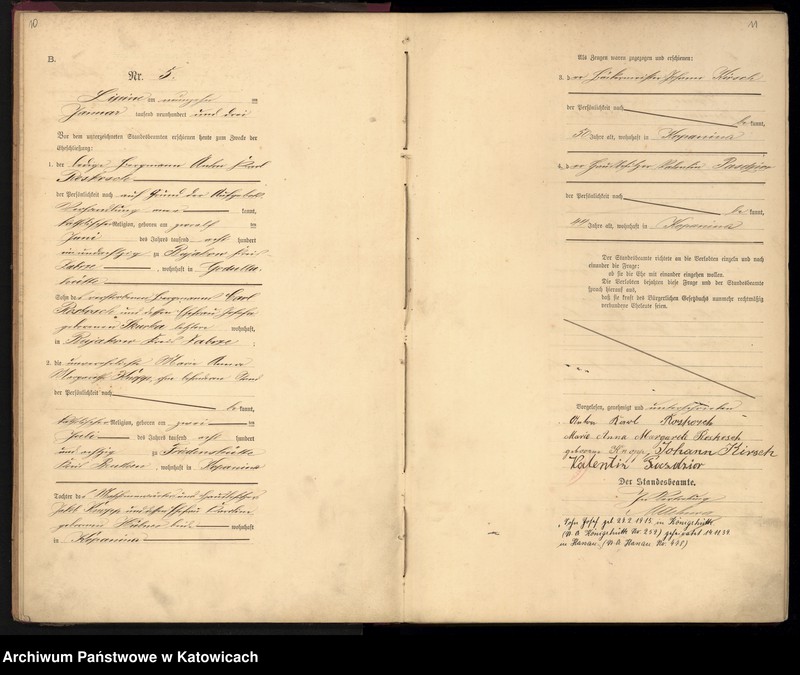 10
B.
Nr. 5.
Lipine am neunzehnten
Januar tausend neunhundert und drei
Vor dem unterzeichneten Standesbeamten erschienen heute zum Zwecke der
Eheschließung:
1. der ledige Bergmann Anton Karl
Roskosch
der Persönlichkeit nach auf Grund der Aufgebots
Verhandlung kannt,
katholischer Religion, geboren am zwölften
Juni des Jahres tausend acht hundert
zu Kreis
Zabrze, wohnhaft in Godulla
hütte
Sohn des verstorbenen Bergmanns Carl
Roskosch und dessen Ehefrau
geborenen Skorka wohnhaft,
in Kreis Zabrze ;
2. die unverehelichte Marie Anna
Margarethe Knopp, ohne besonderen Stand
der Persönlichkeit nach
be kannt,
katholischer Religion, geboren am zwei ten
Juli des Jahres tausend acht hundert
und achtzig zu Friedenshütte
Kreis Beuthen, wohnhaft in Kopanina
Tochter des Maschinenwärters und Hausbesitzers
Knopp und dessen Ehefrau
geborenen beide wohnhaft
in Kopanina
11
Als Zeugen waren zugezogen und erschienen:
3. der Bäckermeister Johann Kirsch
der Persönlichkeit nach
be kannt,
50 Jahre alt, wohnhaft in Kopanina
4. der Hausbesitzer Valentin
der Persönlichkeit nach
be kannt,
44 Jahre alt, wohnhaft in Kopanina
Der Standesbeamte richtete an die Verlobten einzeln und nach
einander die Frage:
ob sie die Ehe mit einander eingehen wollen.
Die Verlobten bejahten diese Frage und der Standesbeamte
sprach hierauf aus,
daß sie kraft des Bürgerlichen Gesetzbuchs nunmehr rechtmäßig
verbundene Eheleute seien.
Vorgelesen, genehmigt und unterschrieben
Anton Karl Roskosch
Marie Anna Margarete Roskosch
geborene Knopp, Johann Kirsch
Valentin
Der Standesbeamte.
In Vertretung
Sohn Josef geb. 22.2.1915 in Königshütte
(St. A. Königshütte Nr. 252) geheiratet 14.11.39
in Hanau. (St. A. Hanau Nr. 448)
Archiwum Państwowe w Katowicach